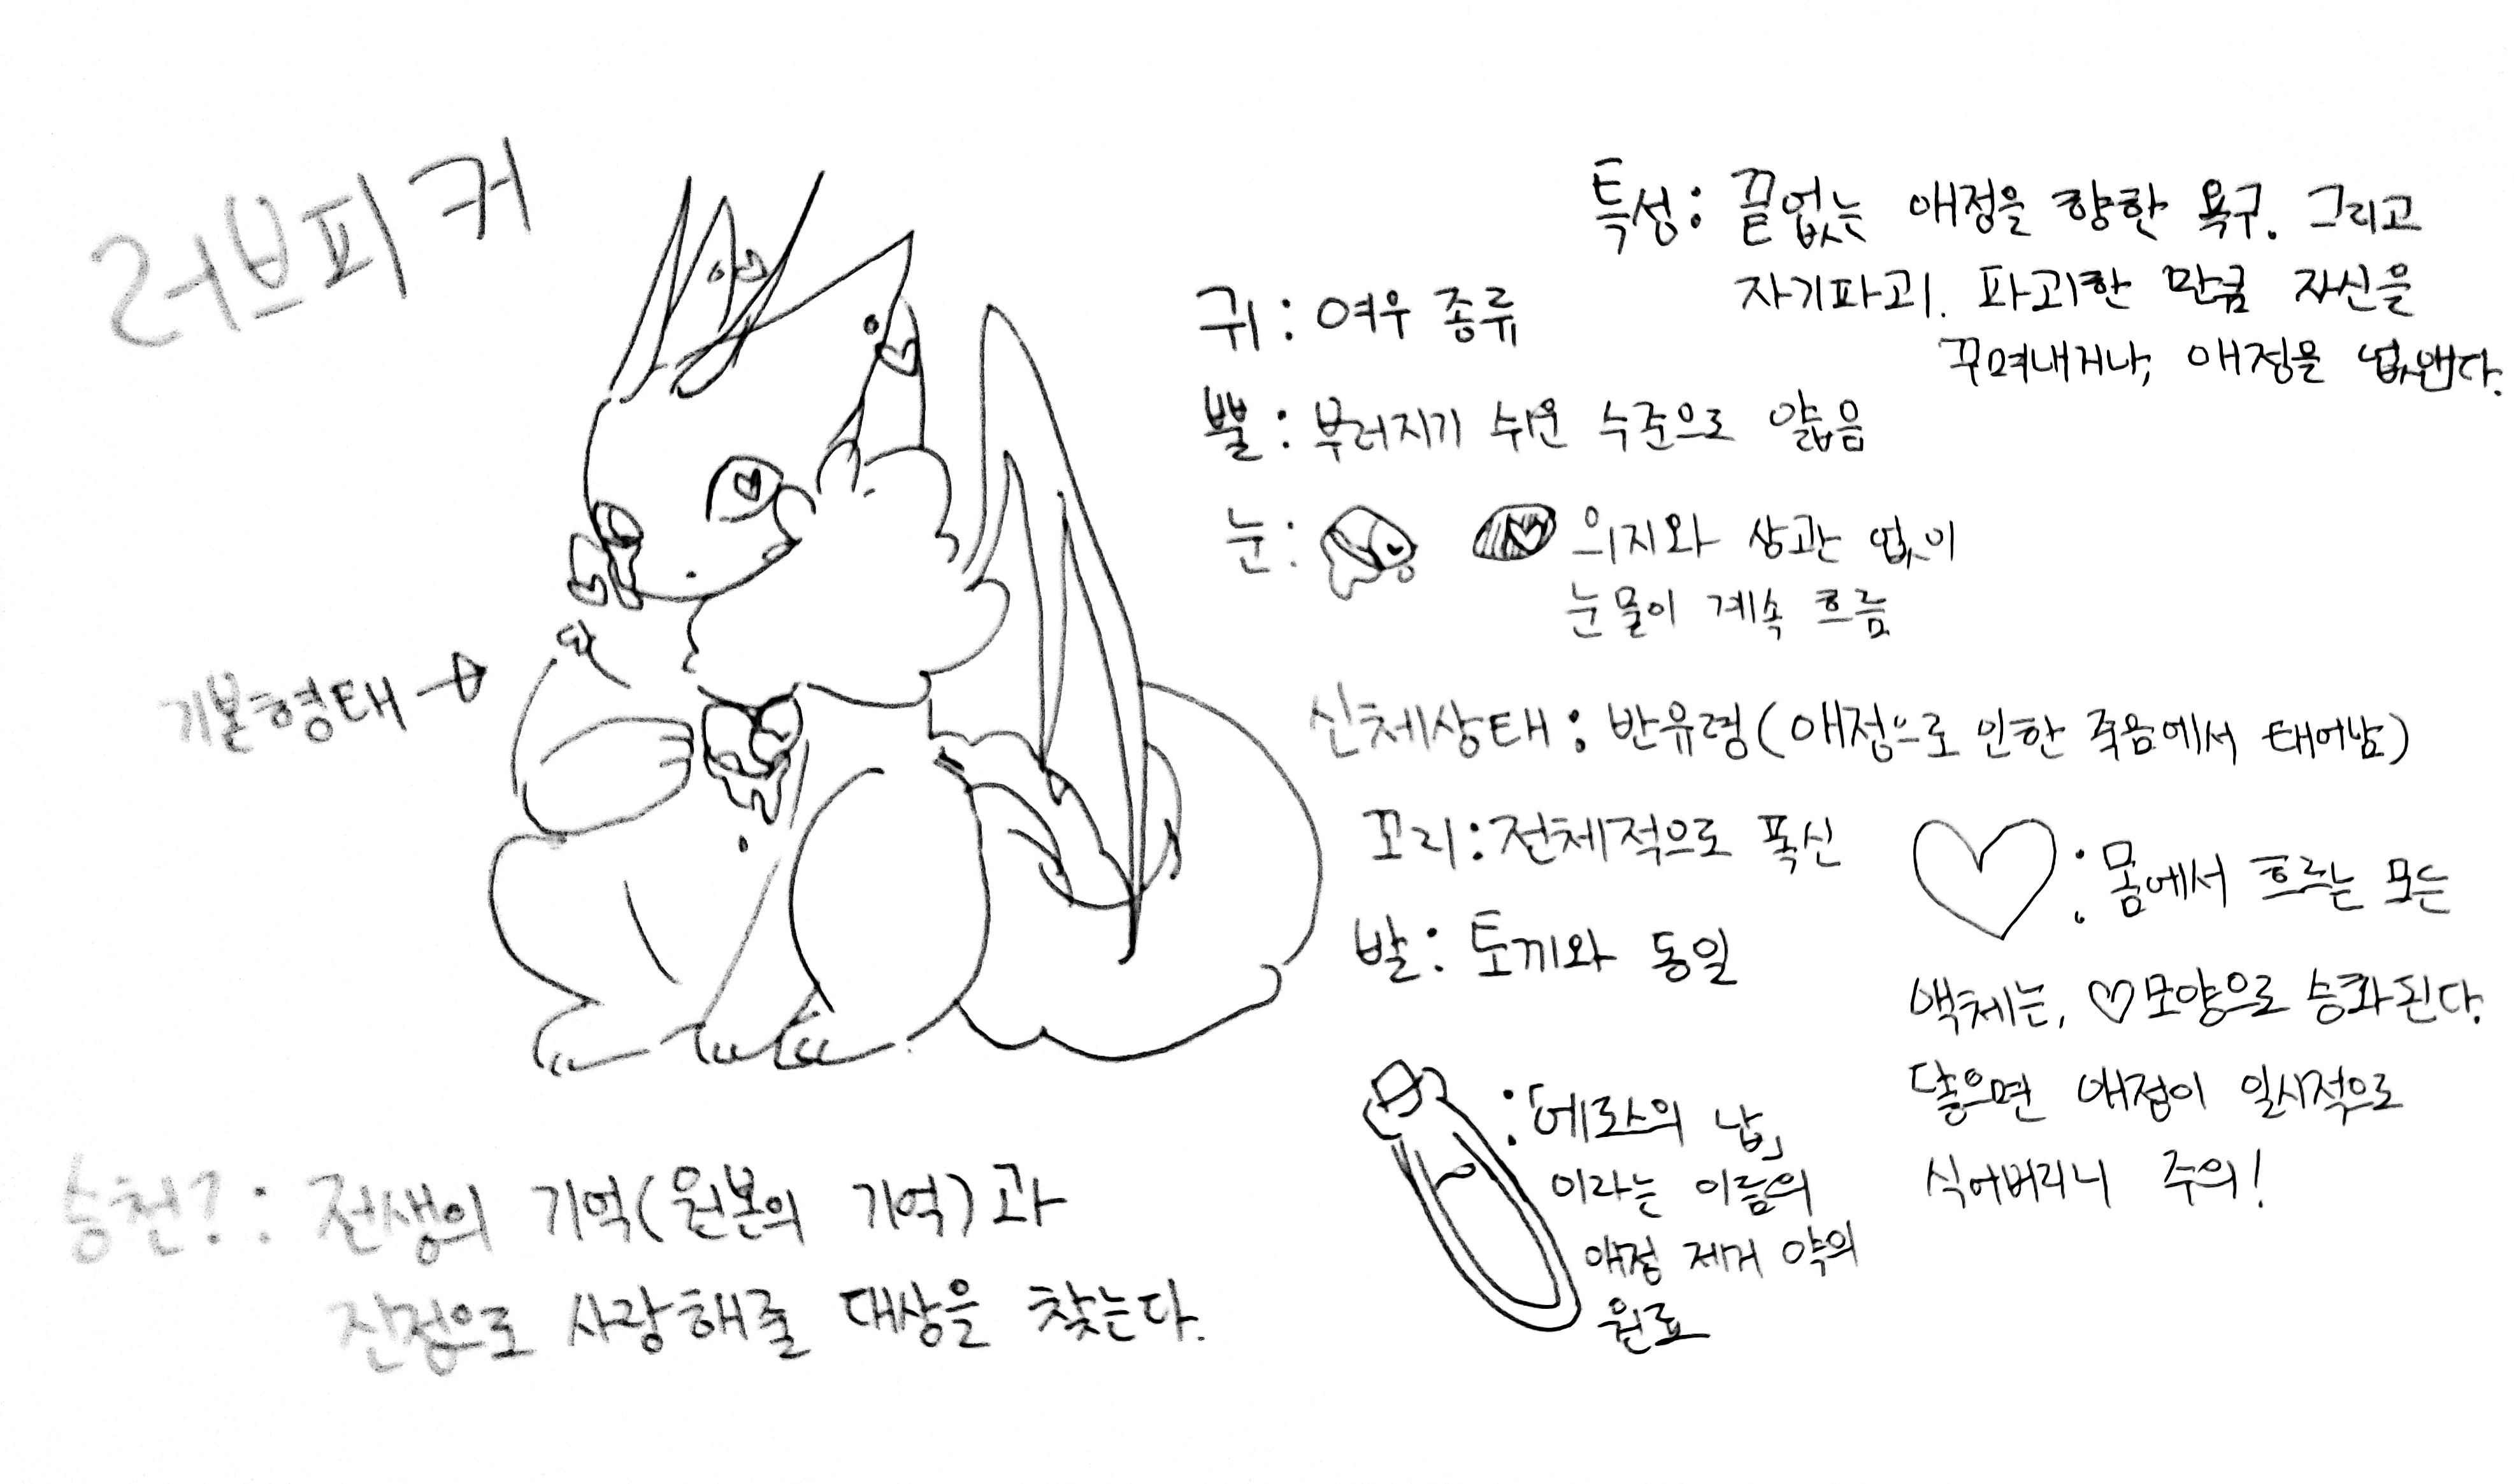 러브피커
특성: 끝없는 애정을 향한 욕구. 그리고
자기파괴. 파괴한 만큼 자신을
꾸며내거나, 애정을 없앤다.
귀: 여우 종류
뿔: 부러지기 쉬운 수준으로 얇음
눈: 의지와 상관 없이
눈물이 계속 흐름
기본형태→
신체상태: 반유령(애정으로 인한 죽음에서 태어남)
꼬리: 전체적으로 폭신
발: 토끼와 동일
♡: 몸에서 흐르는 모든
액체는, ♡모양으로 승화된다.
닿으면 애정이 일시적으로
식어버리니 주의!
:「에로스의 납」
이라는 이름의
애정 제거 약의
원료
승천?: 전생의 기억(원본의 기억)과
진정으로 사랑해줄 대상을 찾는다.